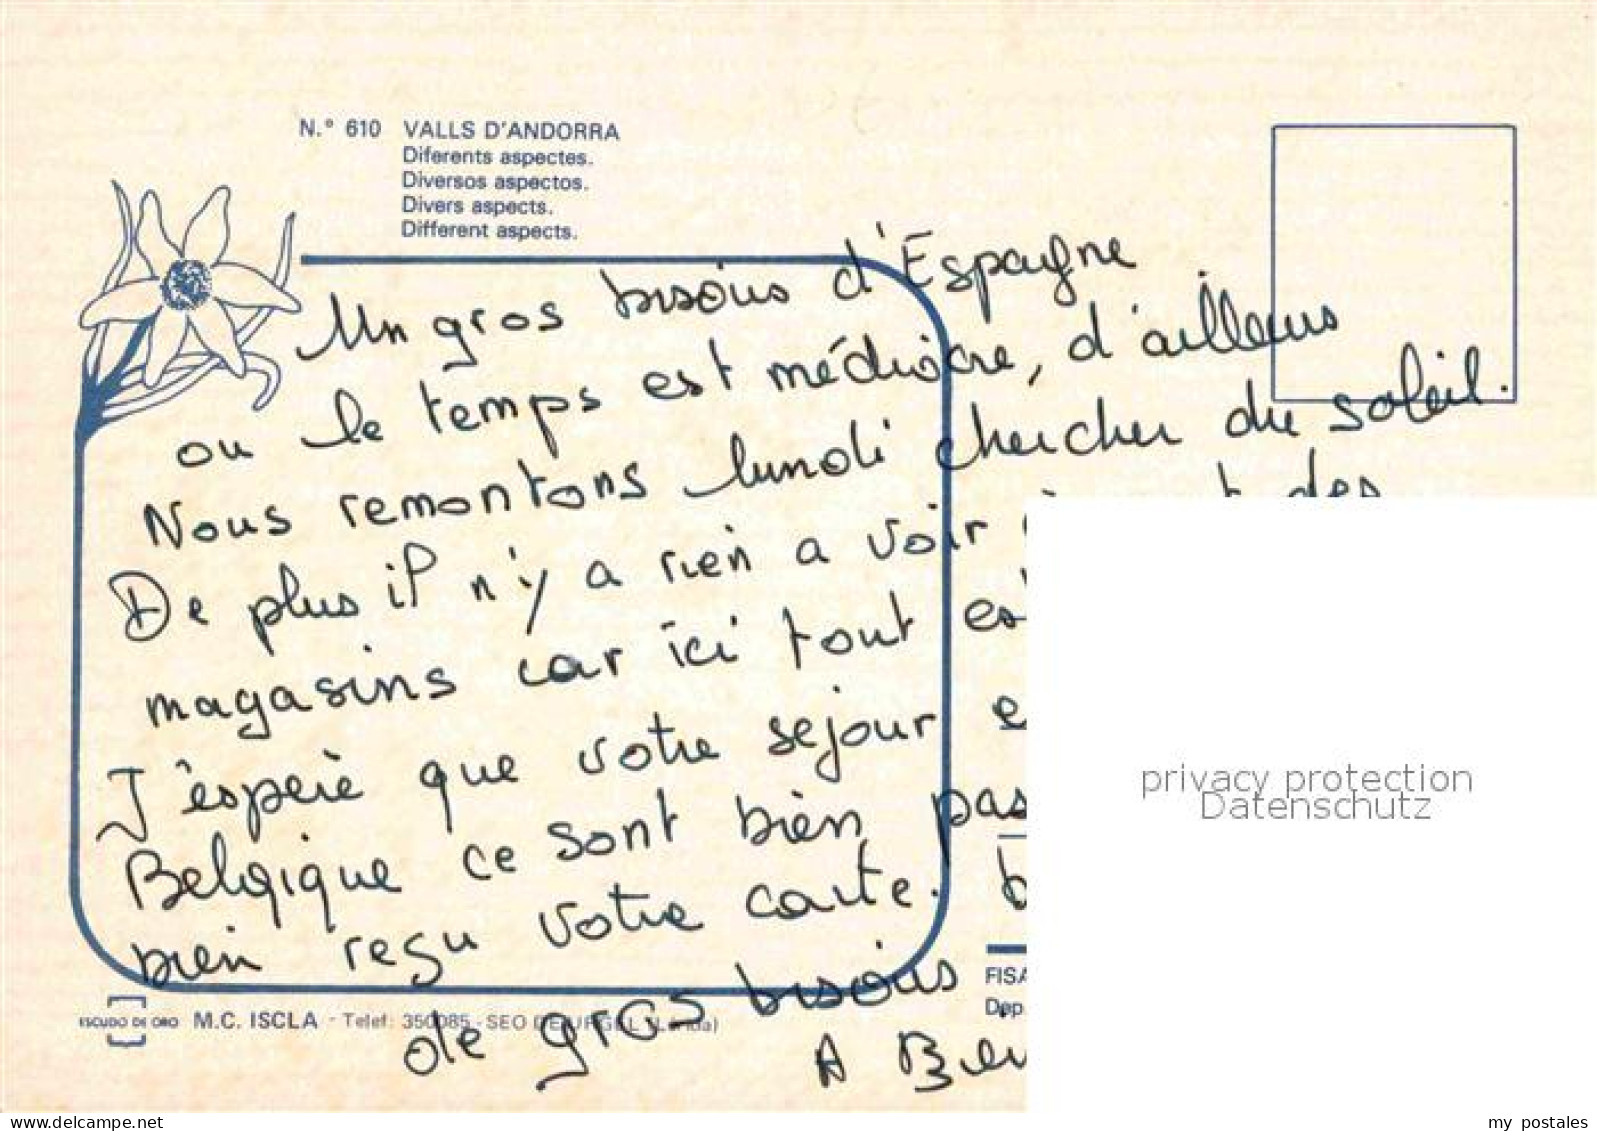 N.º 610 VALLS D'ANDORRA
Diferents aspectes.
Diversos aspectos.
Divers aspects.
Different aspects.
Un gros bisous d'Espagne
ou le temps est médiocre, d'ailleurs
Nous remontons lundi chercher du soleil.
De plus il n'y a rien a voir des
magasins car ici tout
J'espère que votre sejour
Belgique ce sont bien
bien reçu votre carte.
de gros bisous
A
privacy protection
Datenschutz
FISA
Dep
ESCUDO DE ORO M.C. ISCLA - Telef: 350085 - SEO DE URGEL (Lérida)
my_postales
delcampe.net